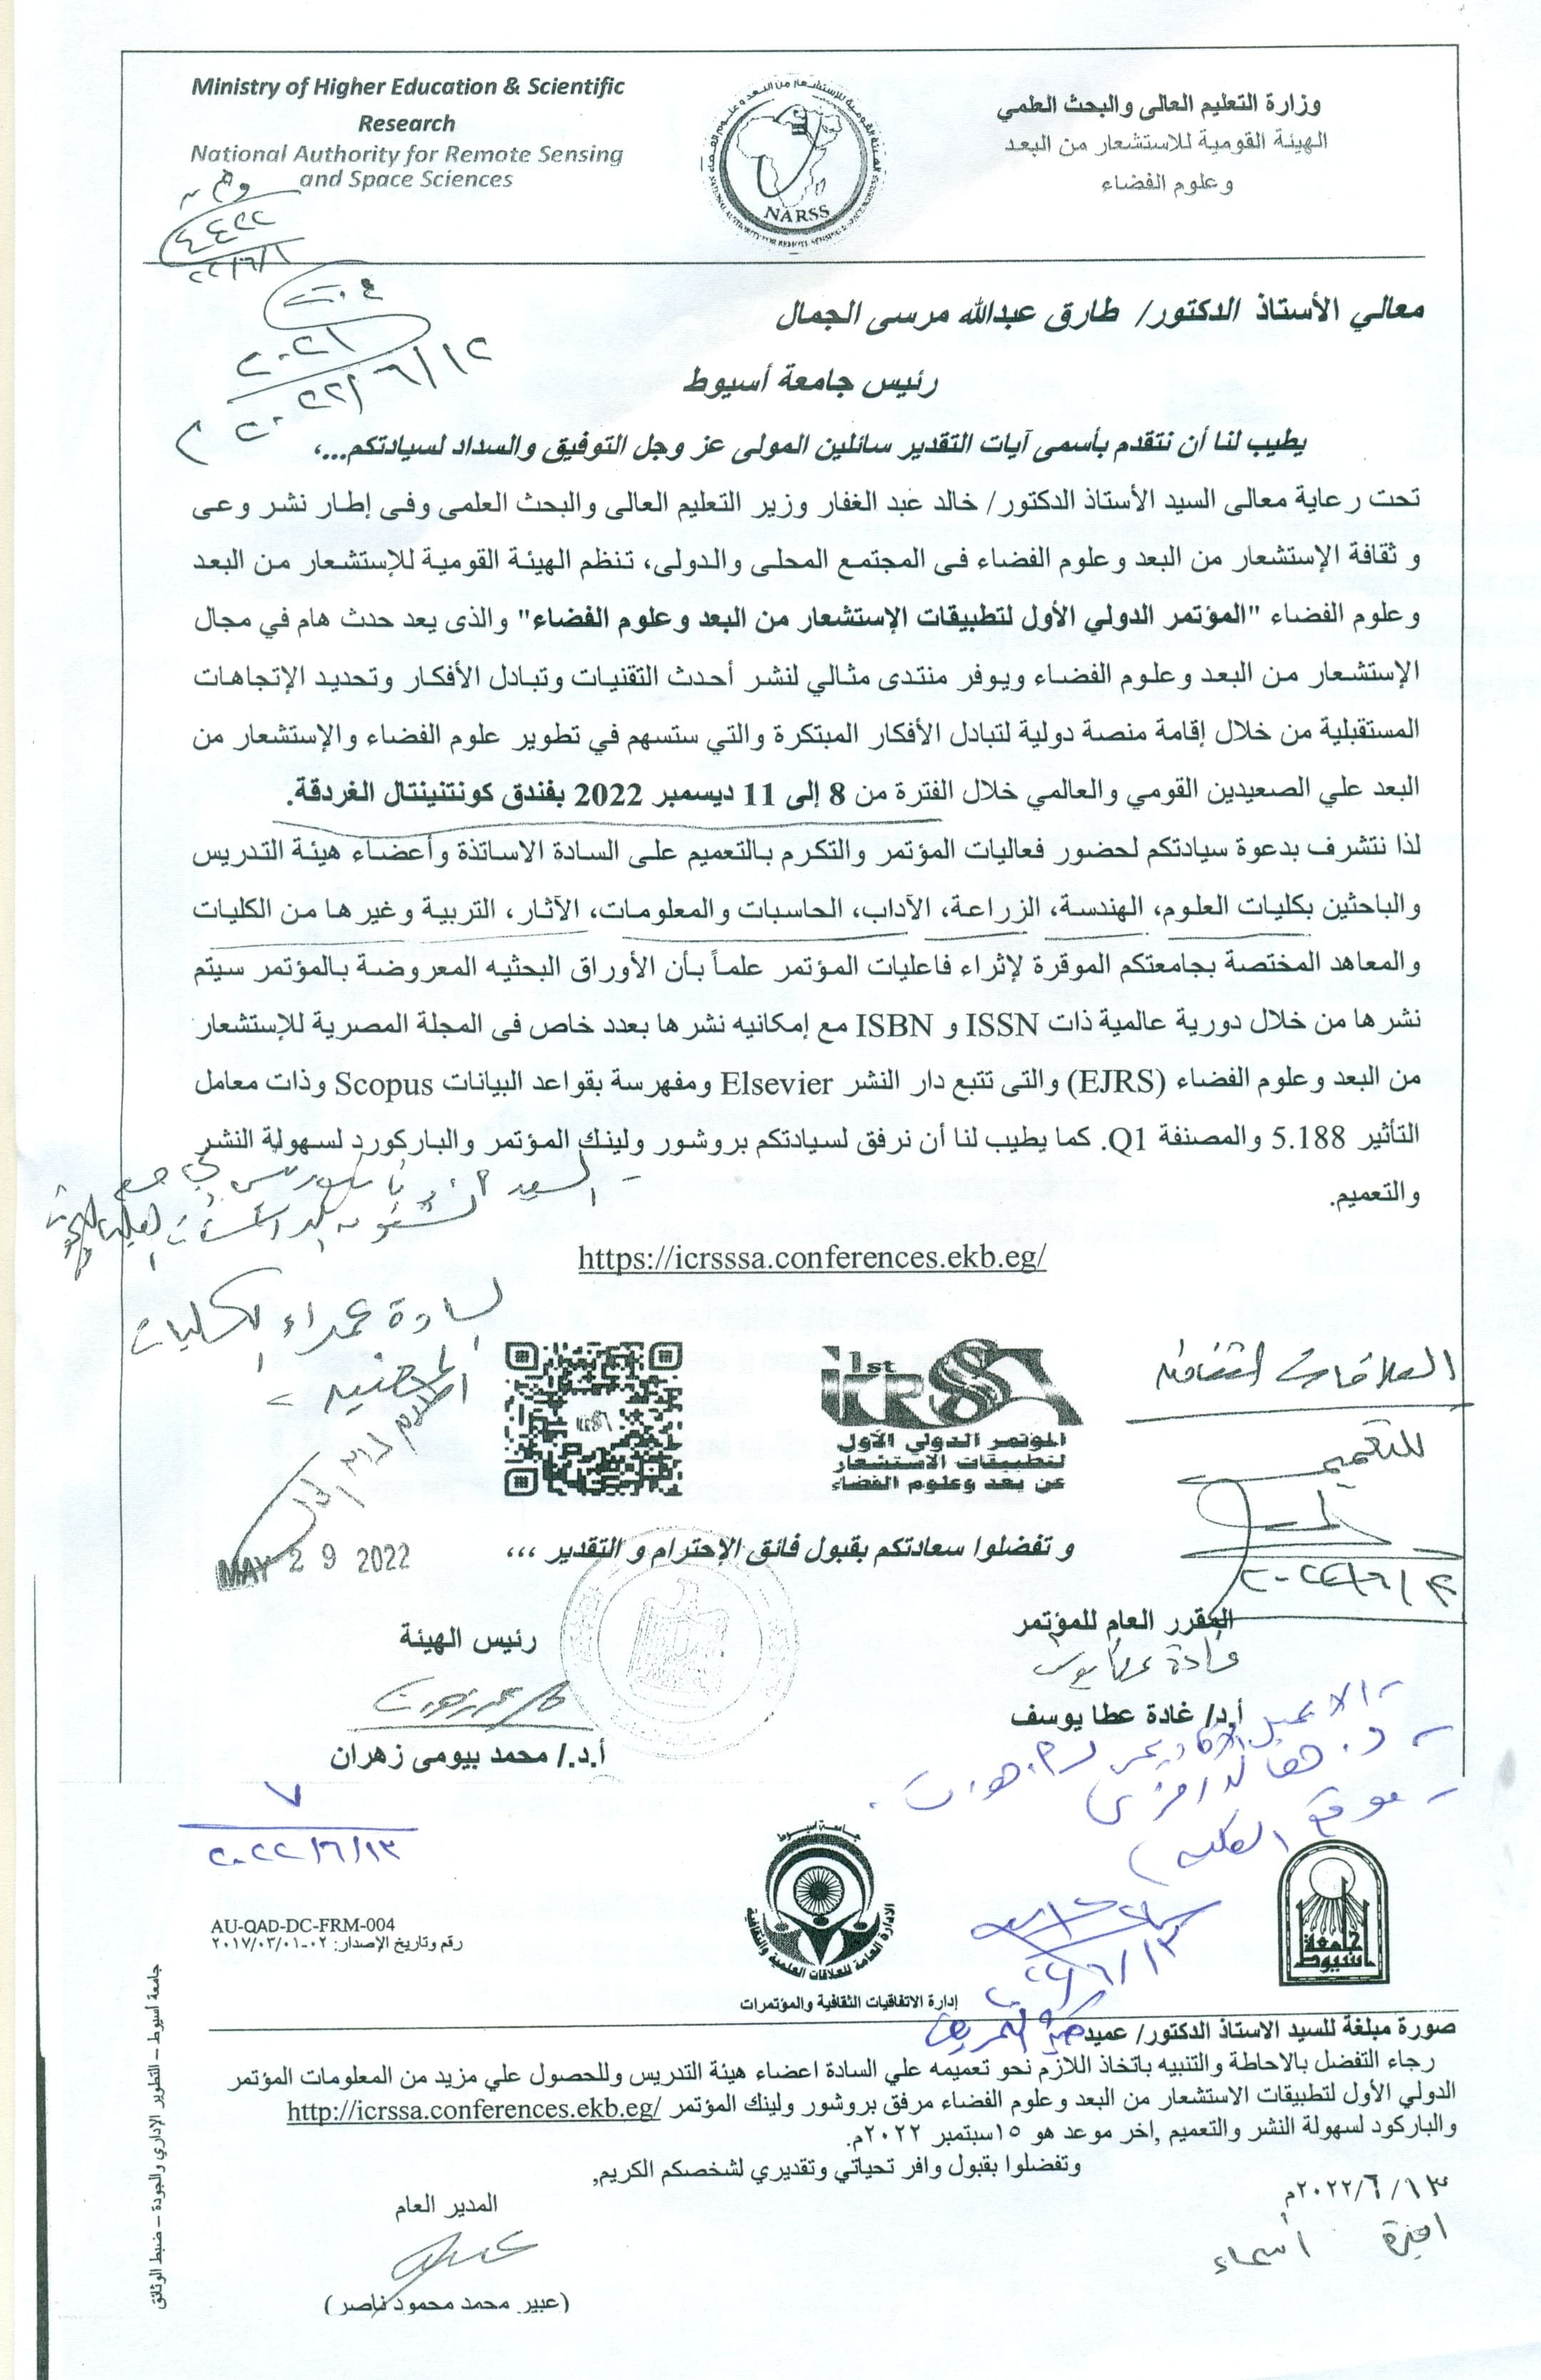 Ministry of Higher Education & Scientific
Research
National Authority for Remote Sensing
and Space Sciences
وزارة التعليم العالى والبحث العلمي
الهيئة القومية للاستشعار من البعد
وعلوم الفضاء
NARSS
٤٤٢٢
٢٢/٦/١
٢٠٢١
٢٠٢٢/٦/١٢
معالي الأستاذ الدكتور/ طارق عبدالله مرسى الجمال
رئيس جامعة أسيوط
يطيب لنا أن نتقدم بأسمى آيات التقدير سائلين المولى عز وجل التوفيق والسداد لسيادتكم...،
تحت رعاية معالى السيد الأستاذ الدكتور/ خالد عبد الغفار وزير التعليم العالى والبحث العلمى وفى إطار نشر وعى
و ثقافة الإستشعار من البعد وعلوم الفضاء فى المجتمع المحلى والدولى، تنظم الهيئة القومية للإستشعار من البعد
وعلوم الفضاء "المؤتمر الدولي الأول لتطبيقات الإستشعار من البعد وعلوم الفضاء" والذى يعد حدث هام في مجال
الإستشعار من البعد وعلوم الفضاء ويوفر منتدى مثالي لنشر أحدث التقنيات وتبادل الأفكار وتحديد الإتجاهات
المستقبلية من خلال إقامة منصة دولية لتبادل الأفكار المبتكرة والتي ستسهم في تطوير علوم الفضاء والإستشعار من
البعد علي الصعيدين القومي والعالمي خلال الفترة من 8 إلى 11 ديسمبر 2022 بفندق كونتنينتال الغردقة.
لذا نتشرف بدعوة سيادتكم لحضور فعاليات المؤتمر والتكرم بالتعميم على السادة الاساتذة وأعضاء هيئة التدريس
والباحثين بكليات العلوم، الهندسة، الزراعة، الآداب، الحاسبات والمعلومات، الآثار، التربية وغيرها من الكليات
والمعاهد المختصة بجامعتكم الموقرة لإثراء فاعليات المؤتمر علماً بأن الأوراق البحثيه المعروضة بالمؤتمر سيتم
نشرها من خلال دورية عالمية ذات ISSN و ISBN مع إمكانيه نشرها بعدد خاص فى المجلة المصرية للإستشعار
من البعد وعلوم الفضاء (EJRS) والتى تتبع دار النشر Elsevier ومفهرسة بقواعد البيانات Scopus وذات معامل
التأثير 5.188 والمصنفة Q1. كما يطيب لنا أن نرفق لسيادتكم بروشور ولينك المؤتمر والباركورد لسهولة النشر
والتعميم.
https://icrsssa.conferences.ekb.eg/
السادة عمداء الكليات
العلاقات الثقافية
للتعميم
1st
المؤتمر الدولي الأول
لتطبيقات الاستشعار
عن بعد وعلوم الفضاء
و تفضلوا سعادتكم بقبول فائق الإحترام و التقدير ،،،
MAY 29 2022
المقرر العام للمؤتمر
غادة عطا يوسف
أ.د/ غادة عطا يوسف
رئيس الهيئة
أ.د./ محمد بيومى زهران
موقع الكلية
٢٠٢٢/٦/١٣
٢٠٢٢/٦/١٣
جامعة أسيوط
الادارة العامة للعلاقات العلمية والثقافية
جامعة أسيوط
AU-QAD-DC-FRM-004
رقم وتاريخ الإصدار: ٠٢-٢٠١٧/٠٣/٠١
إدارة الاتفاقيات الثقافية والمؤتمرات
صورة مبلغة للسيد الاستاذ الدكتور/ عميد
رجاء التفضل بالاحاطة والتنبيه باتخاذ اللازم نحو تعميمه علي السادة اعضاء هيئة التدريس وللحصول علي مزيد من المعلومات المؤتمر
الدولي الأول لتطبيقات الاستشعار من البعد وعلوم الفضاء مرفق بروشور ولينك المؤتمر http://icrssa.conferences.ekb.eg/
والباركود لسهولة النشر والتعميم ,اخر موعد هو ١٥سبتمبر ٢٠٢٢م.
وتفضلوا بقبول وافر تحياتي وتقديري لشخصكم الكريم,
٢٠٢٢/٦/١٣م
أسماء
المدير العام
(عبير محمد محمود ناصر)
جامعة أسيوط – التطوير الإداري والجودة – ضبط الوثائق